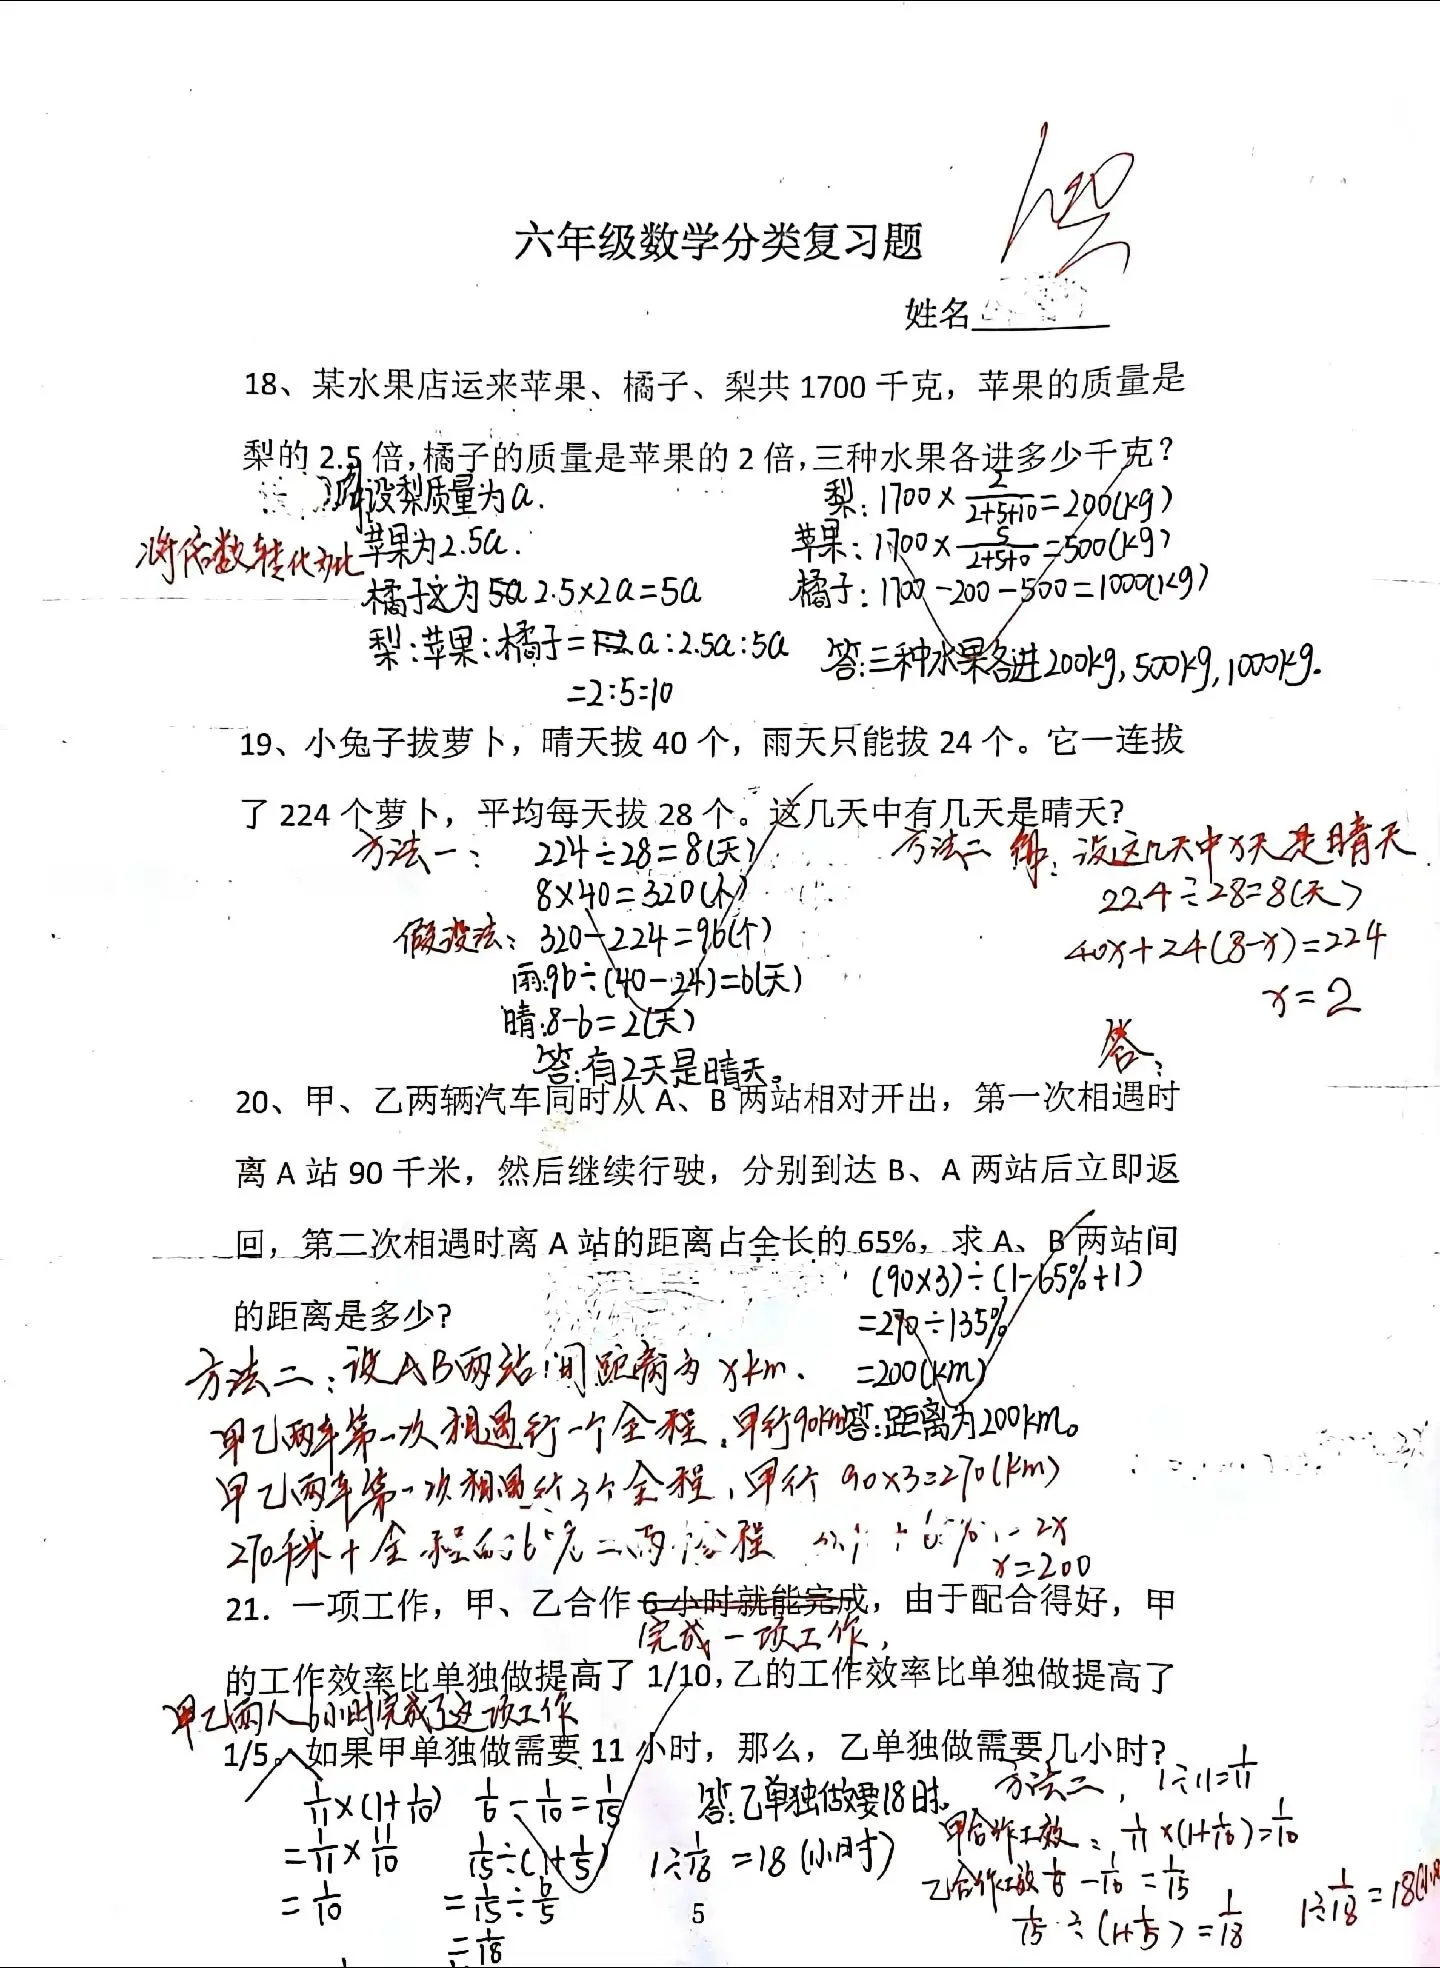 六年级数学分类复习题
姓名
18、某水果店运来苹果、橘子、梨共 1700 千克，苹果的质量是
梨的 2.5 倍，橘子的质量是苹果的 2 倍，三种水果各进多少千克？
设梨质量为a.
苹果为2.5a.
将倍数转化为比
橘子为 2.5×2a=5a
梨:苹果:橘子=a:2.5a:5a
=2:5:10
梨：1700×2/(2+5+10)=200(kg)
苹果：1700×5/(2+5+10)=500(kg)
橘子：1700-200-500=1000(kg)
答:三种水果各进200kg,500kg,1000kg.
19、小兔子拔萝卜，晴天拔 40 个，雨天只能拔 24 个。它一连拔
了 224 个萝卜，平均每天拔 28 个。这几天中有几天是晴天？
方法一：
224÷28=8(天)
8×40=320(个)
假设法：320-224=96(个)
雨:96÷(40-24)=6(天)
晴:8-6=2(天)
答:有2天是晴天。
方法二 解：设这几天中x天是晴天
224÷28=8(天)
40x+24(8-x)=224
x=2
答：
20、甲、乙两辆汽车同时从 A、B 两站相对开出，第一次相遇时
离 A 站 90 千米，然后继续行驶，分别到达 B、A 两站后立即返
回，第二次相遇时离 A 站的距离占全长的 65%，求 A、B 两站间
的距离是多少？
(90×3)÷(1-65%+1)
=270÷135%
=200(km)
答:距离为200km。
方法二：设AB两站间距离为xkm.
甲乙两车第一次相遇行一个全程，甲行90km
甲乙两车第一次相遇行3个全程，甲行 90×3=270(km)
270千米+全程的65%=两个全程
2x
x=200
21．一项工作，甲、乙合作 6 小时就能完成，由于配合得好，甲
完成一项工作，
的工作效率比单独做提高了 1/10，乙的工作效率比单独做提高了
甲乙两人6小时完成了这项工作
1/5。如果甲单独做需要 11 小时，那么，乙单独做需要几小时？
1/11×(1+1/10)
=1/11×11/10
=1/10
1/6-1/10=1/15
1/15÷(1+1/5)
=1/15÷6/5
=1/18
答:乙单独做要18时.
1÷1/18=18(小时)
方法二，1÷11=1/11
甲合作工效：1/11×(1+1/10)=1/10
乙合作工效 1/6-1/10=1/15
1/15÷(1+1/5)=1/18
1÷1/18=18(小时
5